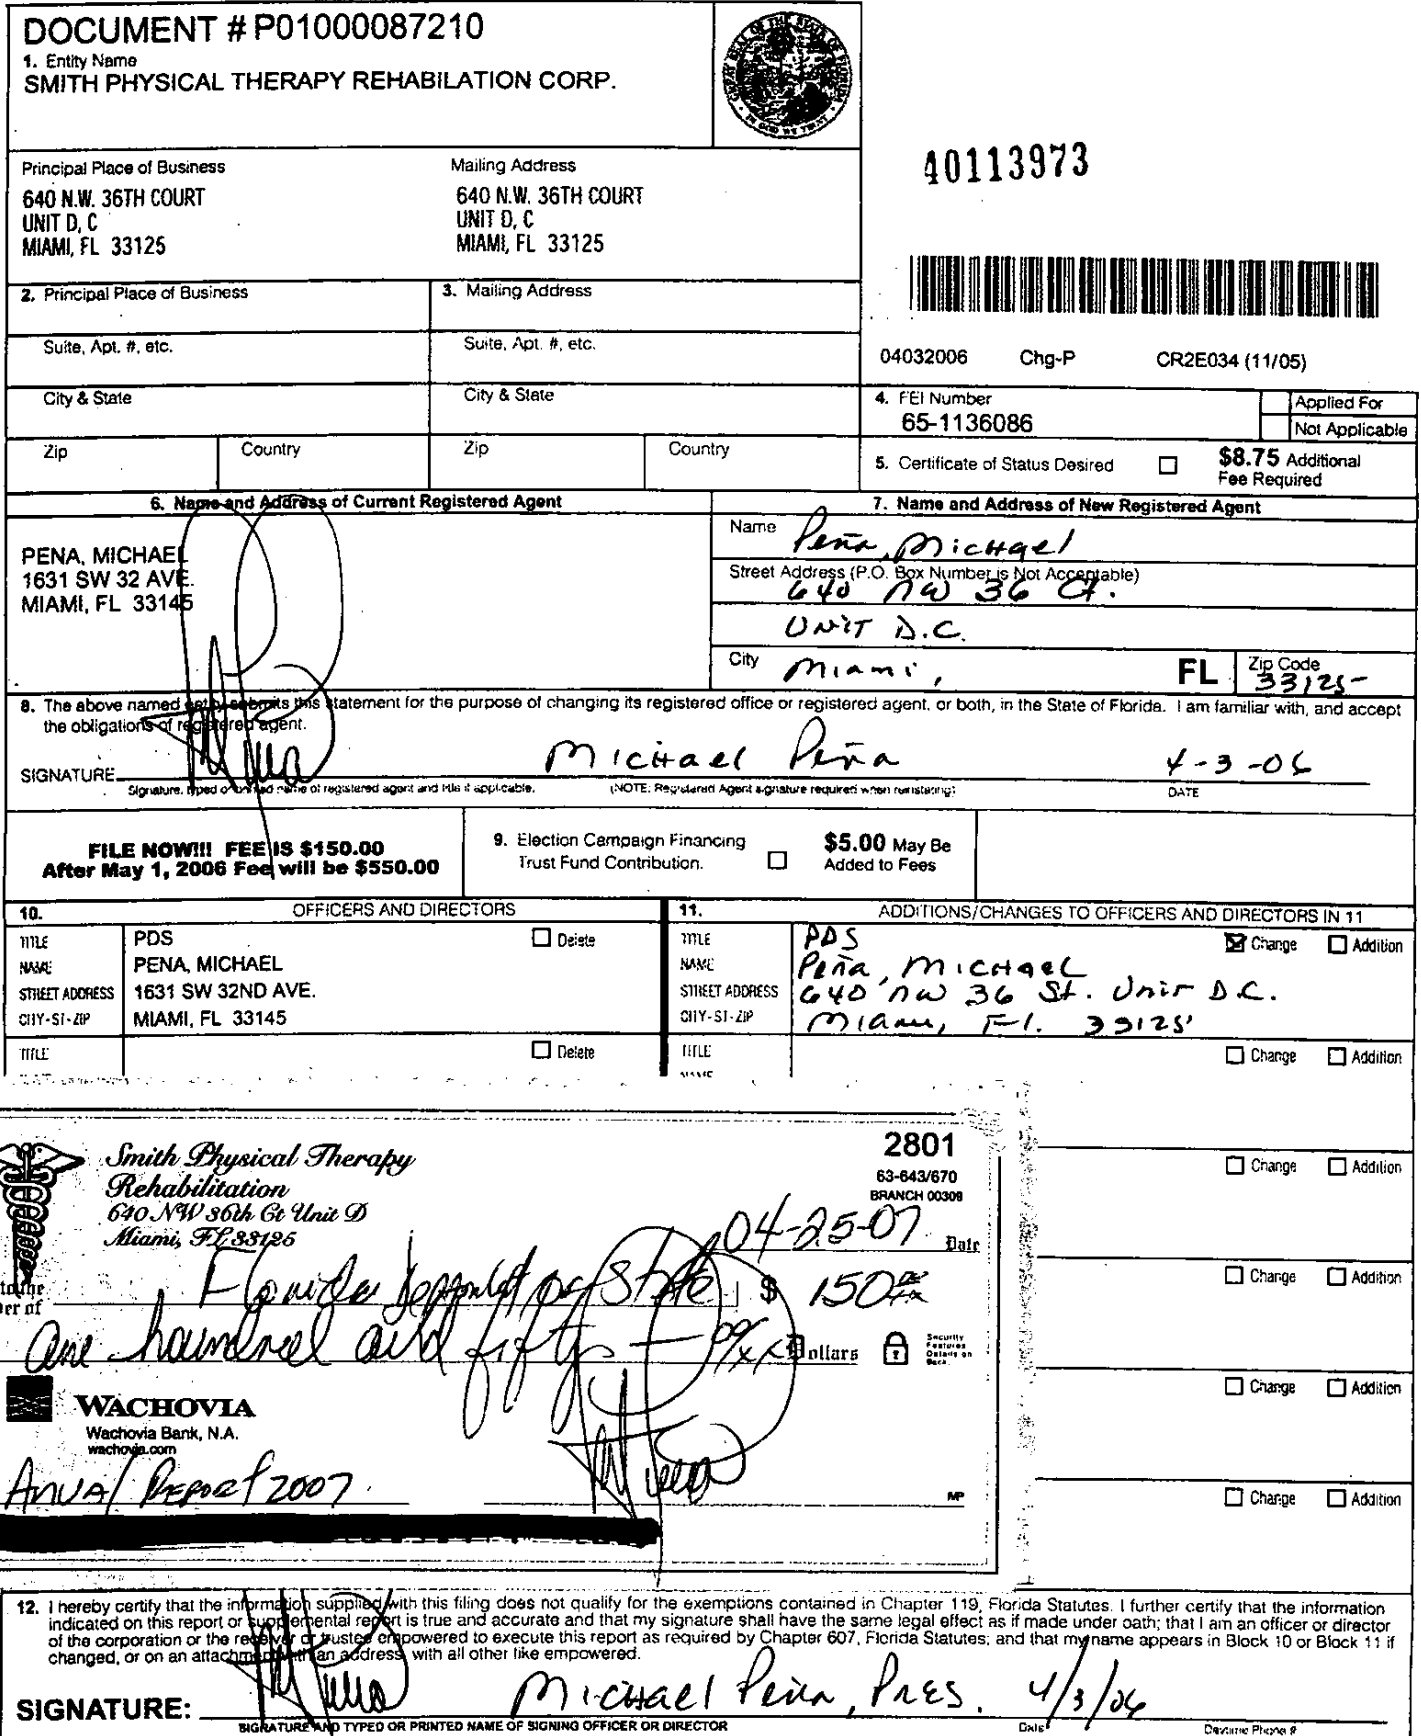 DOCUMENT # P01000087210
1. Entity Name
SMITH PHYSICAL THERAPY REHABILATION CORP.
GREAT SEAL OF THE STATE OF FLORIDA
IN GOD WE TRUST
40113973
Principal Place of Business
640 N.W. 36TH COURT
UNIT D, C
MIAMI, FL 33125
Mailing Address
640 N.W. 36TH COURT
UNIT D, C
MIAMI, FL 33125
2. Principal Place of Business
3. Mailing Address
Suite, Apt. #, etc.
Suite, Apt. #, etc.
04032006 Chg-P CR2E034 (11/05)
City & State
City & State
4. FEI Number
65-1136086
Applied For
Not Applicable
Zip
Country
Zip
Country
5. Certificate of Status Desired
$8.75 Additional
Fee Required
6. Name and Address of Current Registered Agent
7. Name and Address of New Registered Agent
PENA, MICHAEL
1631 SW 32 AVE.
MIAMI, FL 33145
Name Peña, Michael
Street Address (P.O. Box Number is Not Acceptable)
640 NW 36 Ct.
UNIT D.C.
City Miami, FL Zip Code
33125
8. The above named entity submits this statement for the purpose of changing its registered office or registered agent, or both, in the State of Florida. I am familiar with, and accept
the obligations of registered agent.
SIGNATURE Michael Peña 4-3-06
Signature, typed or printed name of registered agent and title if applicable. (NOTE: Registered Agent signature required when reinstating) DATE
FILE NOW!!! FEE IS $150.00
After May 1, 2006 Fee will be $550.00
9. Election Campaign Financing
Trust Fund Contribution.
$5.00 May Be
Added to Fees
10. OFFICERS AND DIRECTORS
11. ADDITIONS/CHANGES TO OFFICERS AND DIRECTORS IN 11
TITLE PDS Delete
NAME PENA, MICHAEL
STREET ADDRESS 1631 SW 32ND AVE.
CITY-ST-ZIP MIAMI, FL 33145
TITLE PDS Change Addition
NAME Peña, Michael
STREET ADDRESS 640 NW 36 St. Unit D.C.
CITY-ST-ZIP Miami, Fl. 33125
TITLE Delete
TITLE Change Addition
NAME
Change Addition
Change Addition
Change Addition
Change Addition
Smith Physical Therapy
Rehabilitation
640 NW 36th Ct Unit D
Miami, FL 33125
2801
63-643/670
BRANCH 00309
04-25-07 Date
to the
er of
Florida State $ 150
One houndred and fifty Dollars
Security
Features
Details on
Back.
WACHOVIA
Wachovia Bank, N.A.
wachovia.com
Anual Report 2007
MP
12. I hereby certify that the information supplied with this filing does not qualify for the exemptions contained in Chapter 119, Florida Statutes. I further certify that the information
indicated on this report or supplemental report is true and accurate and that my signature shall have the same legal effect as if made under oath; that I am an officer or director
of the corporation or the receiver or trustee empowered to execute this report as required by Chapter 607, Florida Statutes; and that my name appears in Block 10 or Block 11 if
changed, or on an attachment with an address, with all other like empowered.
SIGNATURE: Michael Peña, Pres. 4/3/06
SIGNATURE AND TYPED OR PRINTED NAME OF SIGNING OFFICER OR DIRECTOR Date Daytime Phone #